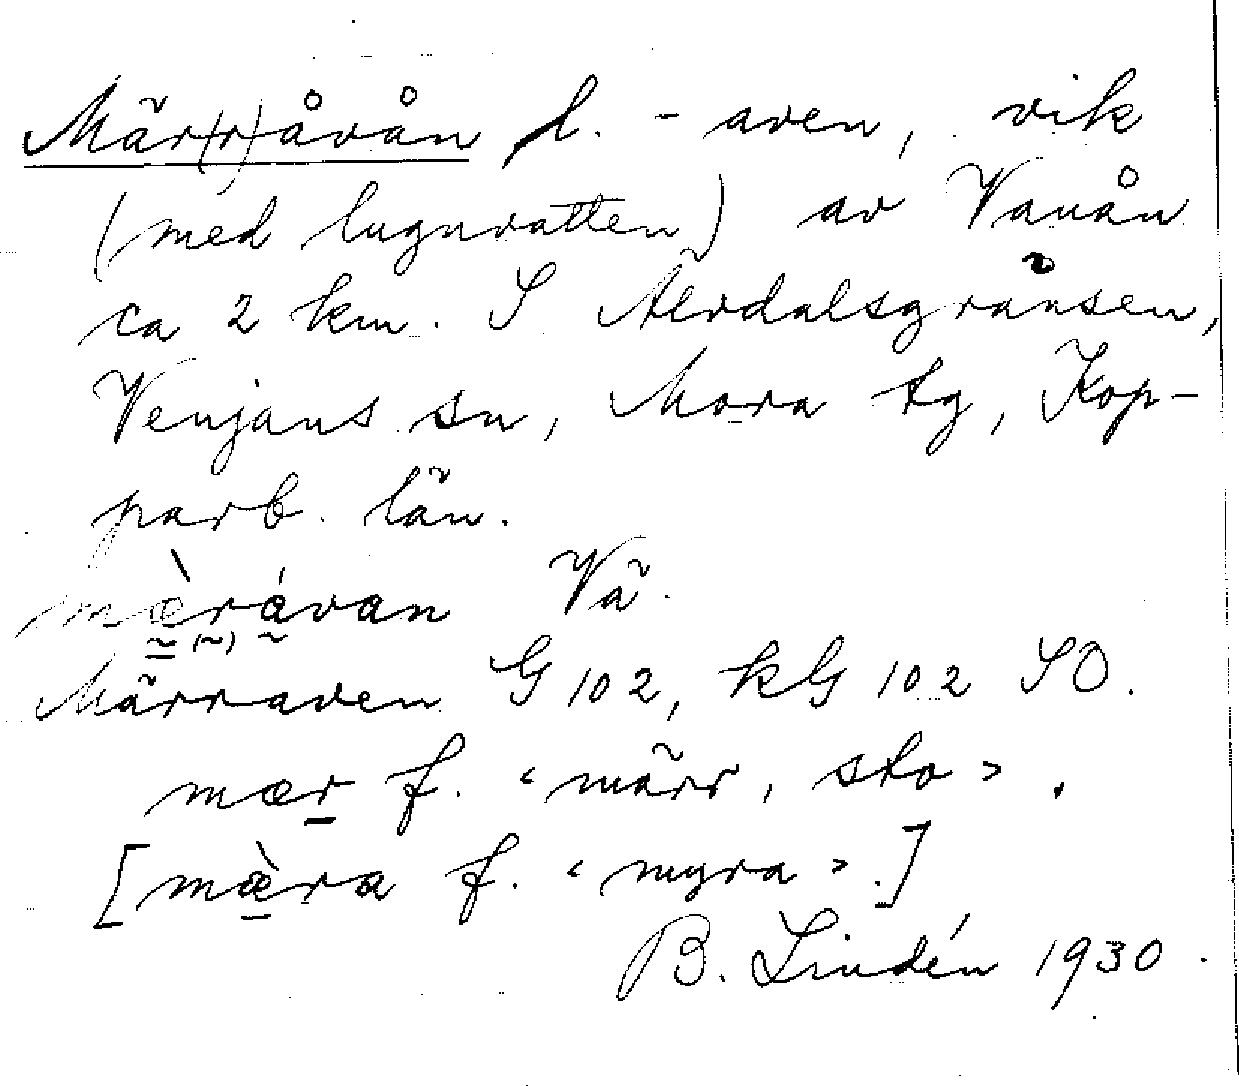 Mär(r)åvån l. -aven, vik
(med lugnvatten) av Vanån
ca 2 km. S Älvdalsgränsen,
Venjans sn, Mora tg, Kop-
parb. län.
mæ̀rávan Vä.
Märraven G 102, kG 102 SO.
mær f. ‹märr, sto›.
[mæ̀ra f. ‹myra›.]
B. Lindén 1930.